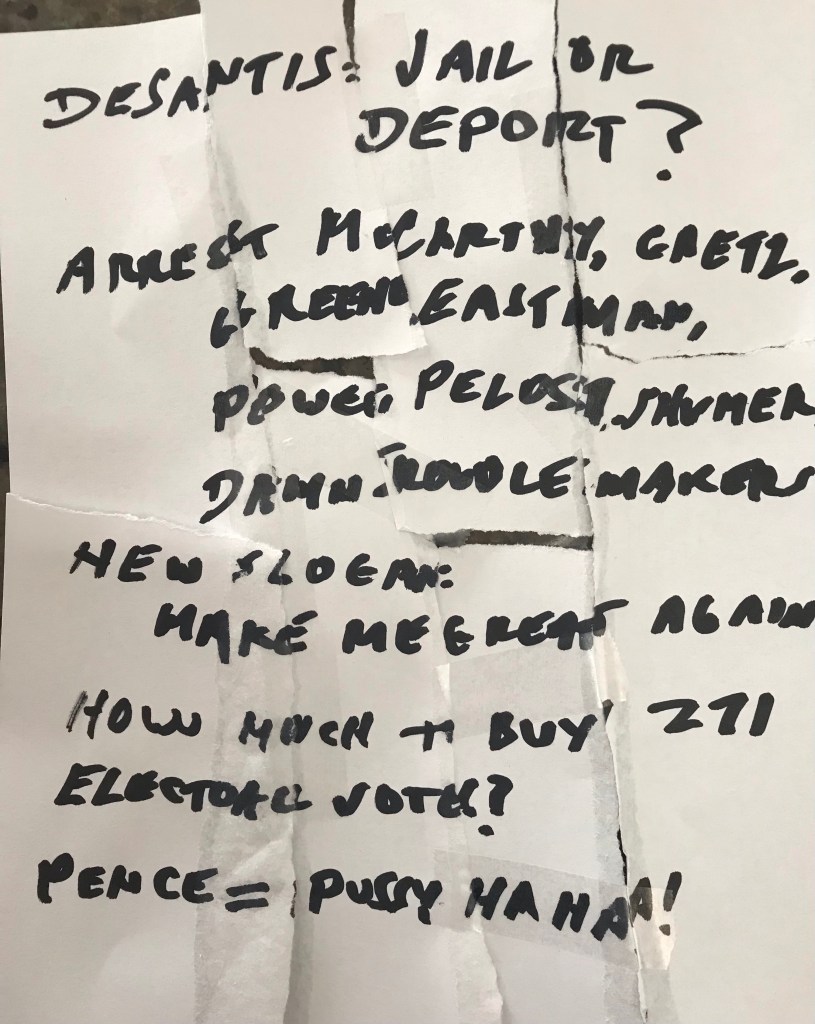 DESANTIS: JAIL OR
DEPORT?
ARREST MCCARTHY, GAETZ,
GREENE, EASTMAN,
POWELL, PELOSI, SHUMER
DAMN TROUBLE MAKERS
NEW SLOGAN:
MAKE ME GREAT AGAIN
HOW MUCH TO BUY 271
ELECTORAL VOTES?
PENCE = PUSSY HA HA A!